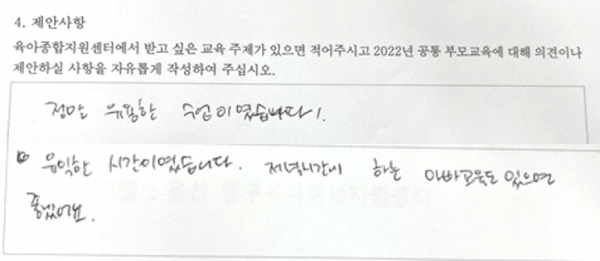 4. 제안사항
육아종합지원센터에서 받고 싶은 교육 주제가 있으면 적어주시고 2022년 공통 부모교육에 대해 의견이나
제안하실 사항을 자유롭게 작성하여 주십시오.
정말 유용한 수업이였습니다!.
유익한 시간이였습니다. 저녁시간에 하는 아빠교육도 있으면
좋겠어요.